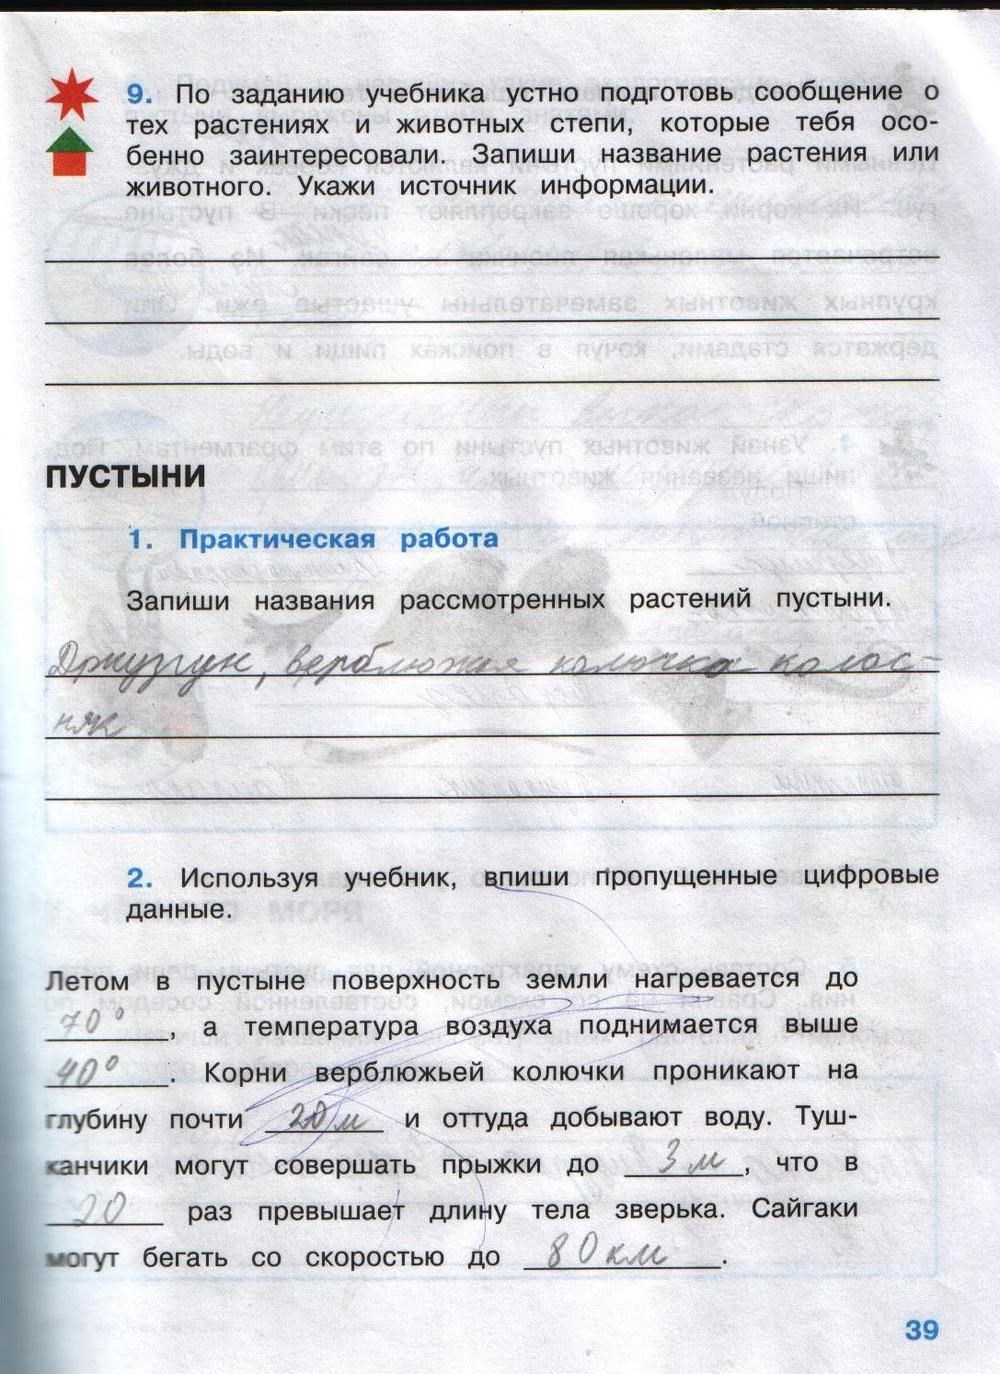 9. По заданию учебника устно подготовь сообщение о
тех растениях и животных степи, которые тебя осо-
бенно заинтересовали. Запиши название растения или
животного. Укажи источник информации.
ПУСТЫНИ
1. Практическая работа
Запиши названия рассмотренных растений пустыни.
Джузгун, верблюжая колючка колос-
няк
2. Используя учебник, впиши пропущенные цифровые
данные.
Летом в пустыне поверхность земли нагревается до
70°, а температура воздуха поднимается выше
40°. Корни верблюжьей колючки проникают на
глубину почти 20 м и оттуда добывают воду. Туш-
канчики могут совершать прыжки до 3 м, что в
20 раз превышает длину тела зверька. Сайгаки
могут бегать со скоростью до 80 км.
39